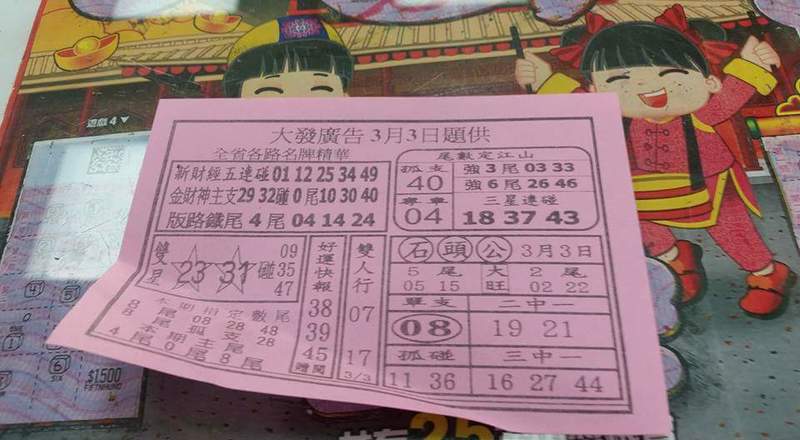 遊戲4▼
大發廣告3月3日題供
全省各路名牌精華
新財經五連碰01 12 25 34 49
金財神主支29 32碰 0尾10 30 40
版路鐵尾 4尾 04 14 24
尾數定江山
孤支
40
強3尾03 33
強6尾26 46
專車
04
三星連碰
18 37 43
雙星
23 31 碰
09
35
47
本期指定數尾
8尾 08 28 48
8尾 孤支 28
本期主尾
4尾0尾8尾
好運快報
38
39
45
贈閱
雙人行
07
17
3/3
石頭公 3月3日
5尾
05 15
大旺
2尾
02 22
單支
08
二中一
19 21
孤碰
11 36
三中一
16 27 44
$1,500
FIFTNHUND
25